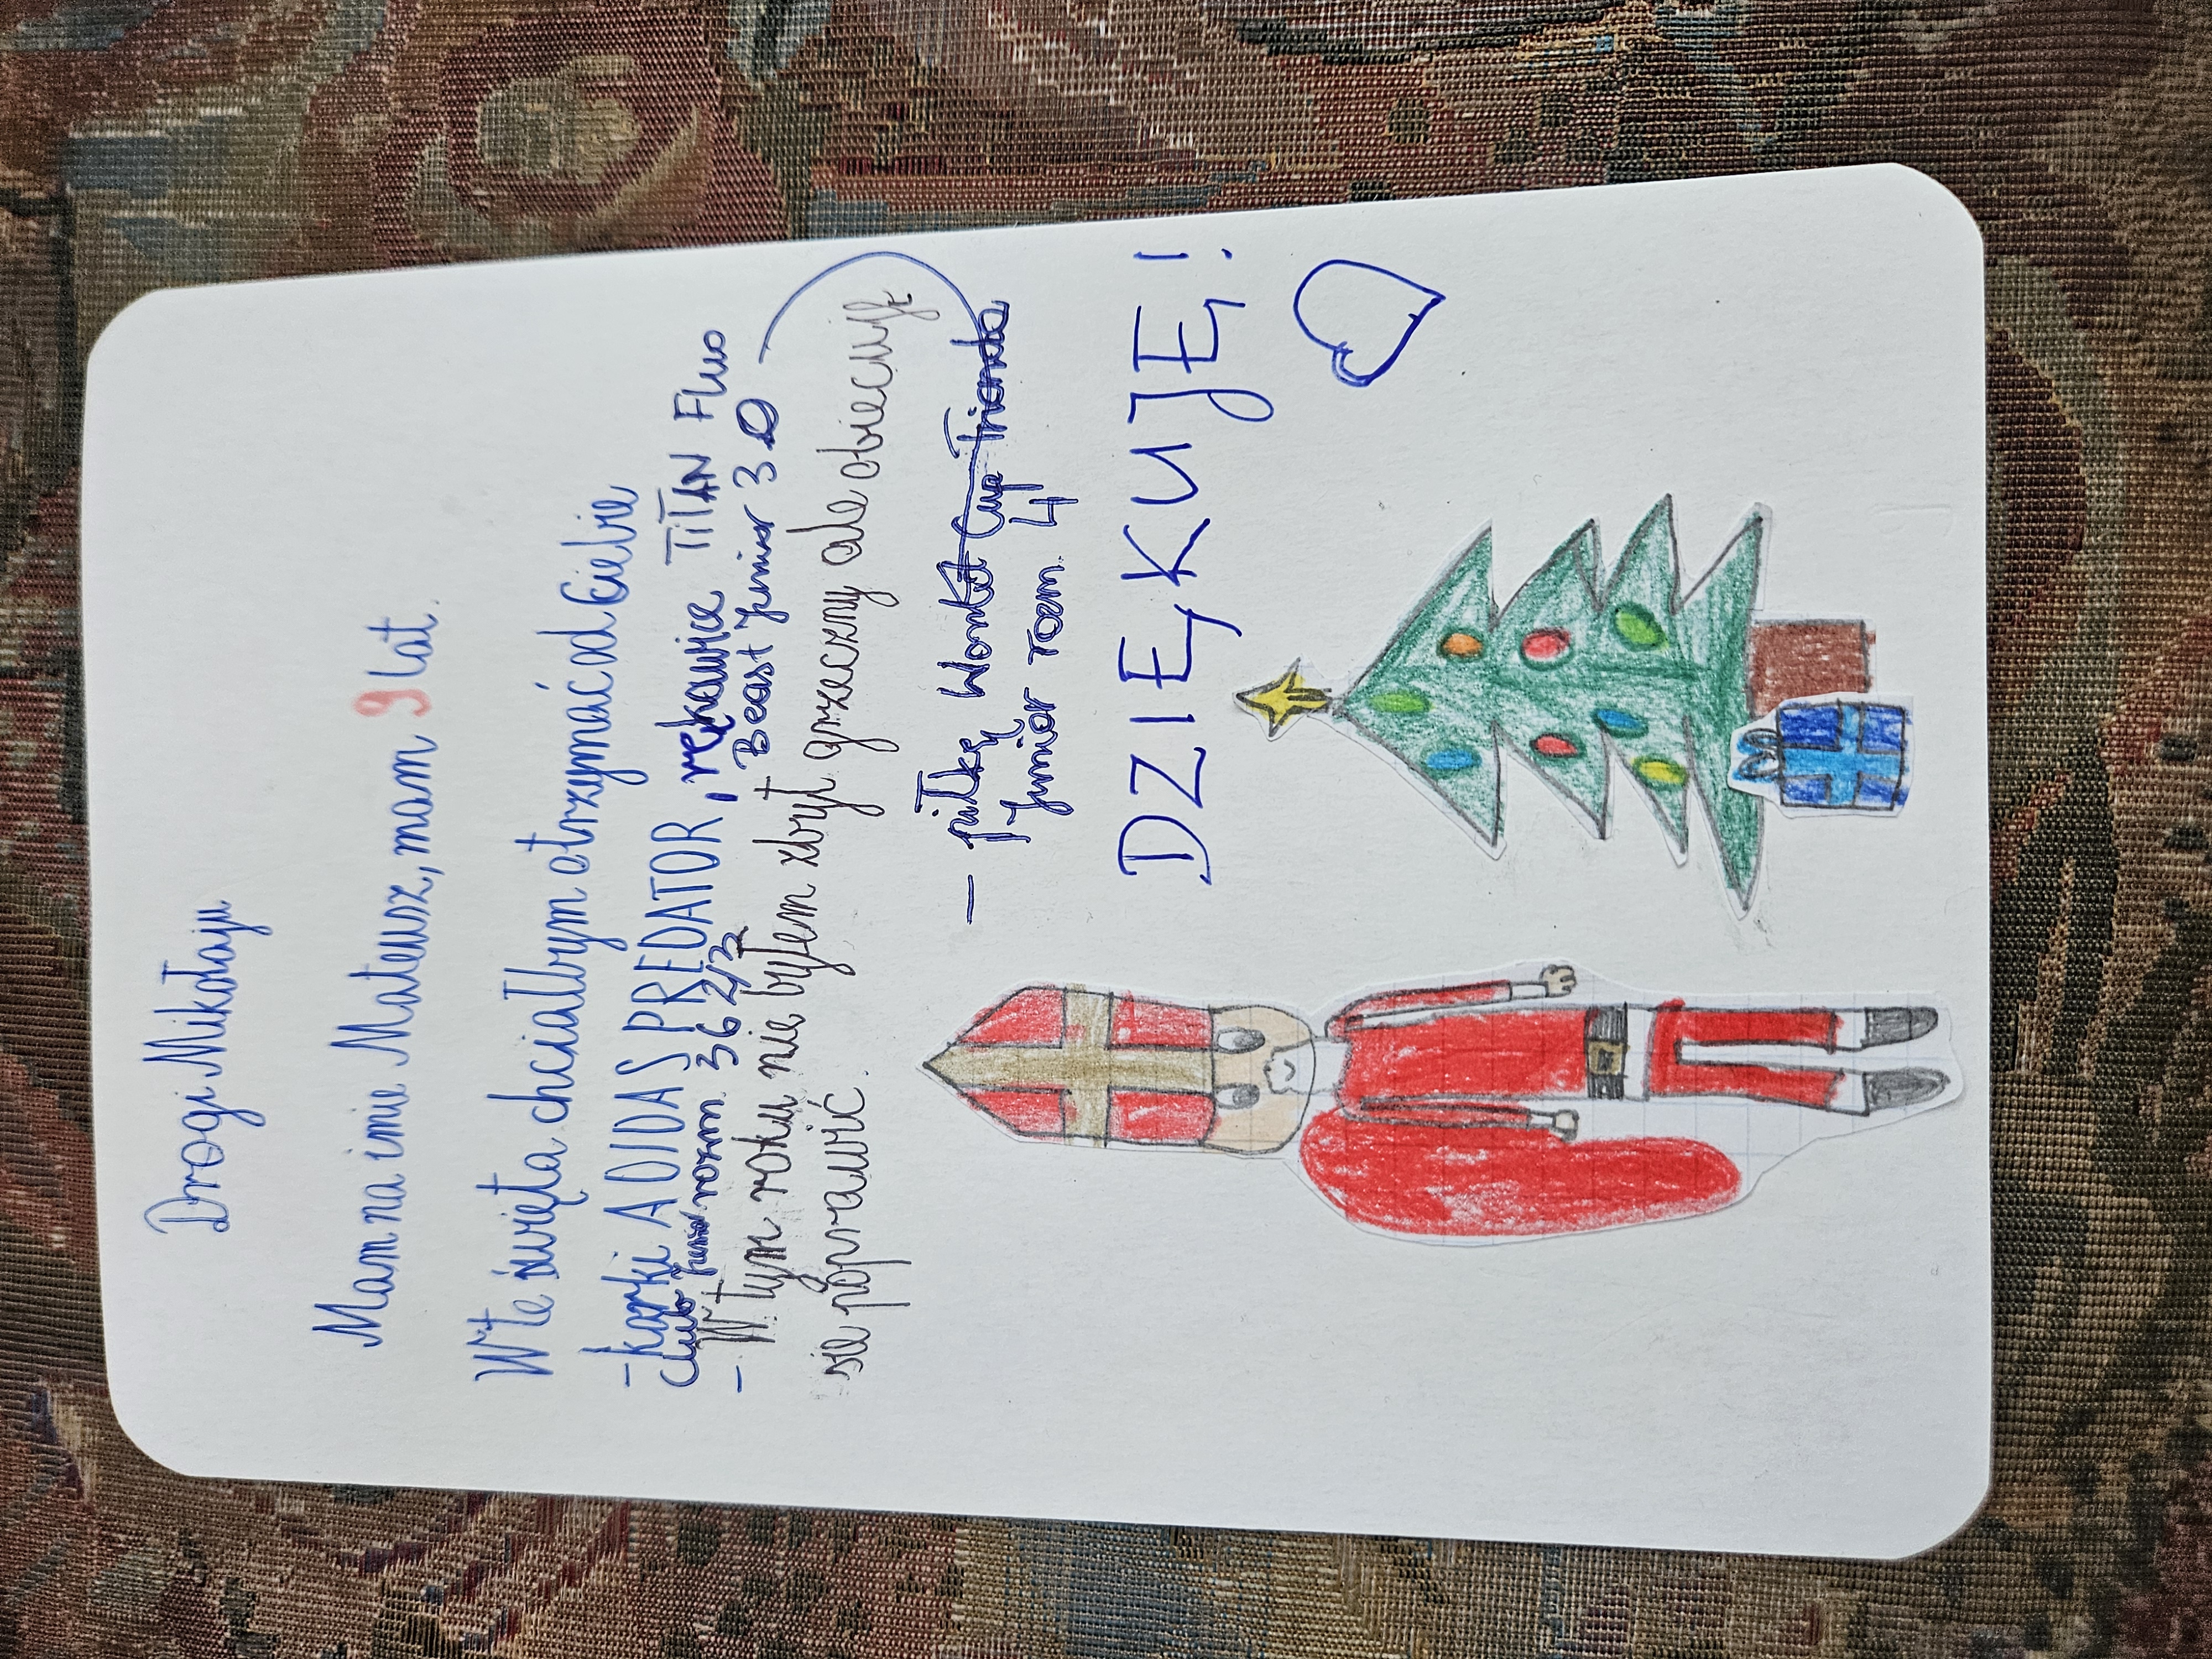 Drogi Mikołaju
Mam na imie Mateusz, mam 9 lat.
W te święta chciałbym otrzymać od Ciebie
- korki ADIDAS PREDATOR, rękawice TiTAN Fluo
Club Junior rozm. 36 2/3 Beast Junior 3.0
- W tym roku nie byłem zbyt grzeczny ale obiecuję
sie poprawić.
- piłkę World Cup Trionda
Junior rozm. 4
DZIĘKUJĘ!